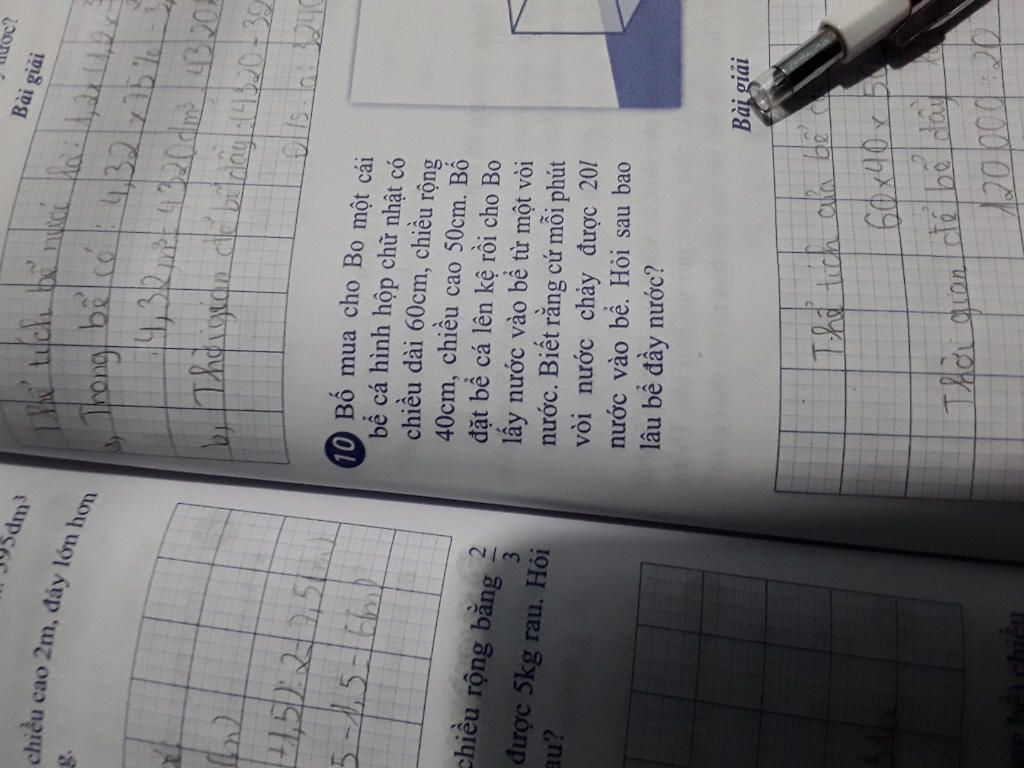 nước?
Bài giải
Thể tích bể nước là: 1,2 x 1,2 x
a, Trong bể có: 4,32 x
4,32 m³ = 4320 dm³ = 4320
b, Thời gian để bể đầy: (4320 - 39
Đ/s: a, 3240
10 Bố mua cho Bo một cái
bể cá hình hộp chữ nhật có
chiều dài 60cm, chiều rộng
40cm, chiều cao 50cm. Bố
đặt bể cá lên kệ rồi cho Bo
lấy nước vào bể từ một vòi
nước. Biết rằng cứ mỗi phút
vòi nước chảy được 20l
nước vào bể. Hỏi sau bao
lâu bể đầy nước?
Bài giải
Thể tích của bể
60 x 40 x 5
Thời gian để bể đầy
120000 : 20
395dm³
chiều cao 2m, đáy lớn hơn
g.
+1,5) : 2 = 7,5 (m)
5 - 1,5 = 6 m)
chiều rộng bằng 2/3
được 5kg rau. Hỏi
au?